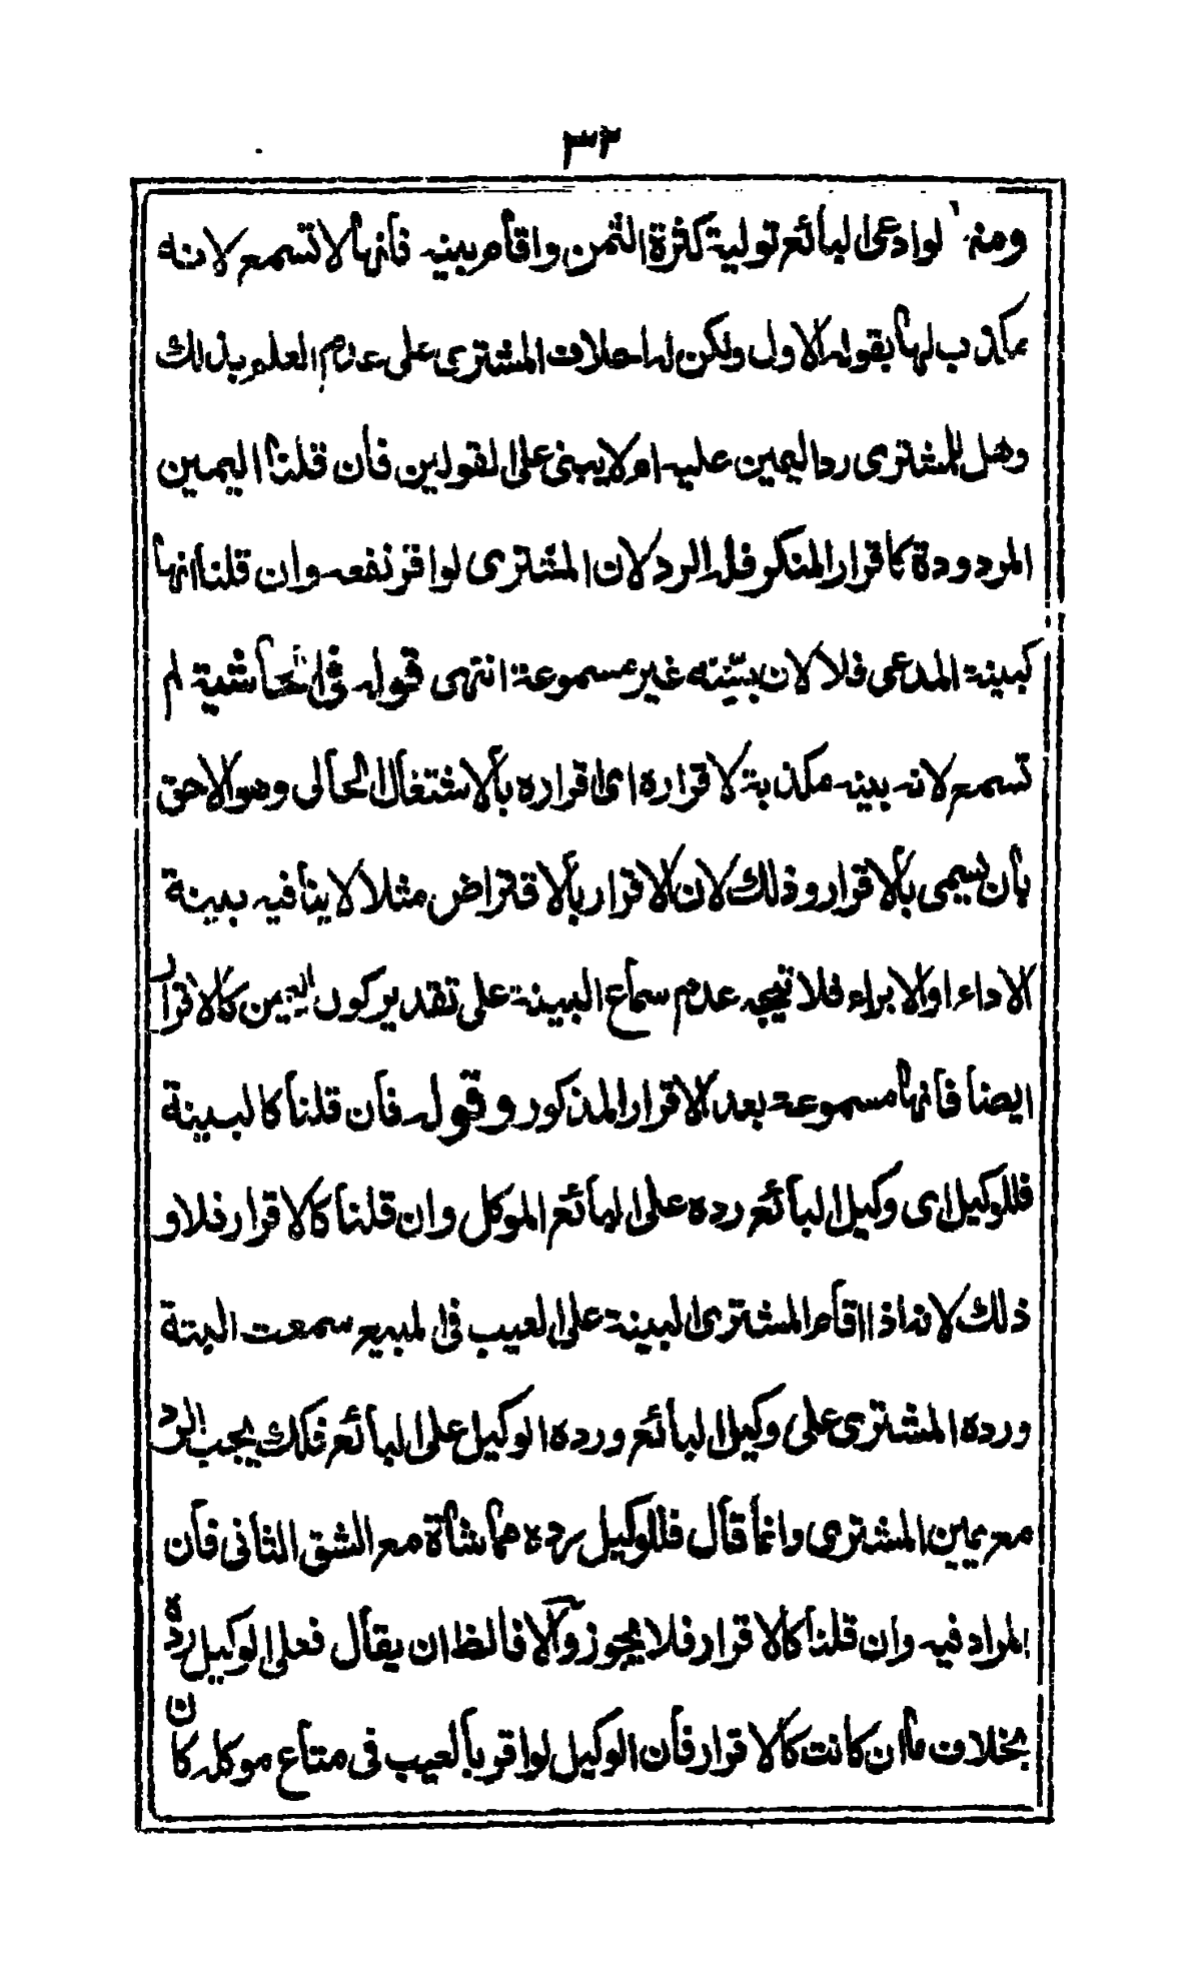 ٣٣
ومنه لو ادعى البائع تولية كثرة الثمن واقام بينه فانها لا تسمع لانه
مكذب لها بقوله الاول ولكن له احلاف المشترى على عدم العلم بذلك
وهل للمشترى رد اليمين عليه ام لا يبنى على القولين فان قلنا اليمين
المردودة كاقرار المنكر فله الرد لان المشترى لو اقر نفعه وان قلنا انها
كبينة المدعى فلا لان بينته غير مسموعة انتهى قوله فى الحاشية لم
تسمع لانه بينه مكذبة لاقراره اى اقراره بالاشتغال الحالى وهو الاحق
بان يسمى بالاقرار وذلك لان الاقرار بالاقتراض مثلا لا ينافيه ببينة
الاداء او الابراء فلا تيجه عدم سماع البينة على تقدير كون اليمين كالاقرار
ايضا فانها مسموعة بعد الاقرار المذكور وقوله فان قلنا كالبينة
فللوكيل اى وكيل البائع رده على البائع الموكل وان قلنا كالاقرار فلا و
ذلك لانه اذا اقام المشترى البينة على العيب فى المبيع سمعت البتة
ورده المشترى على وكيل البائع ورده الوكيل على البائع فكك يجب الرد
مع يمين المشترى وانما قال فللوكيل رده مماشاة مع الشق الثانى فان
المراد فيه وان قلنا كالاقرار فلا يجوز والا فالظ ان يقال فعلى الوكيل رده
بخلاف ما ان كانت كالاقرار فان الوكيل لو اقر بالعيب فى متاع موكله كان